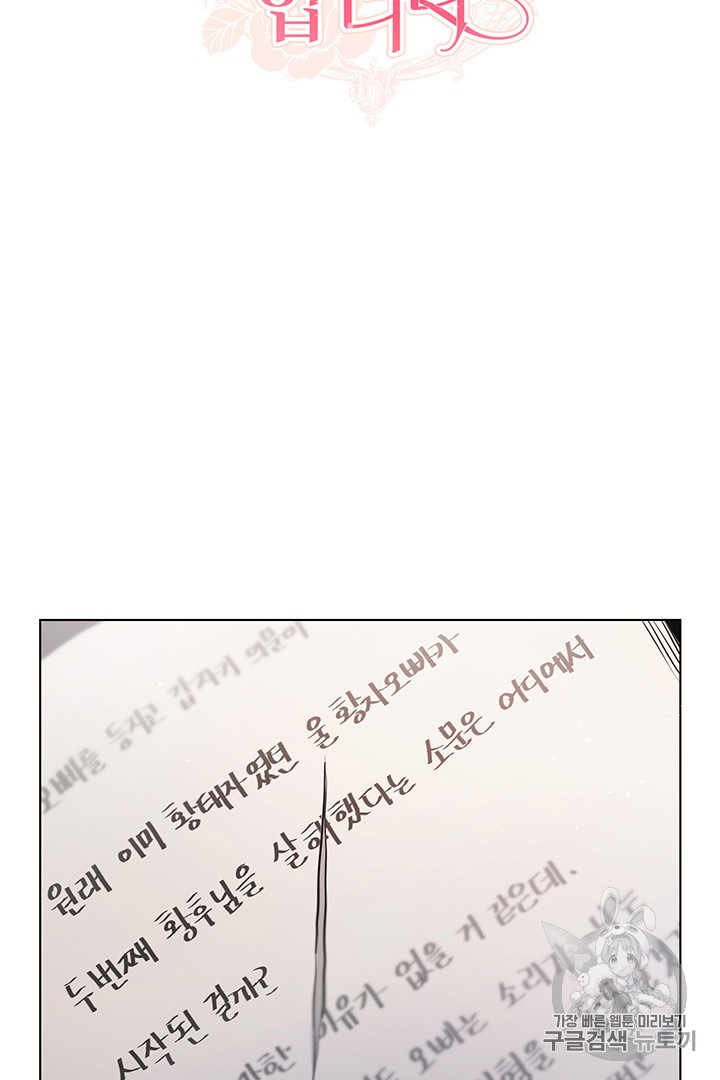 입니다
오빠를 등지고 갑자기 의문이
원래 이미 황태자였던 울 황자오빠가
두번째 황후님을 살해했다는 소문은 어디에서
시작된 걸까?
이유가 없을 거 같은데.
오빠는
가장 빠른 웹툰 미리보기
구글검색 뉴토끼